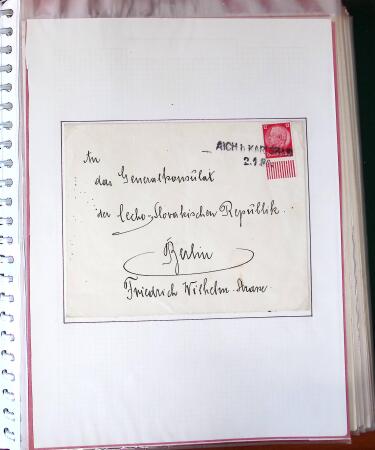 AICH b. KARLSBAD
2.1.39
An
das Generalkonsulat
der Čecho-Slovakischen Republik.
Berlin
Friedrich Wilhelm-Strasse.